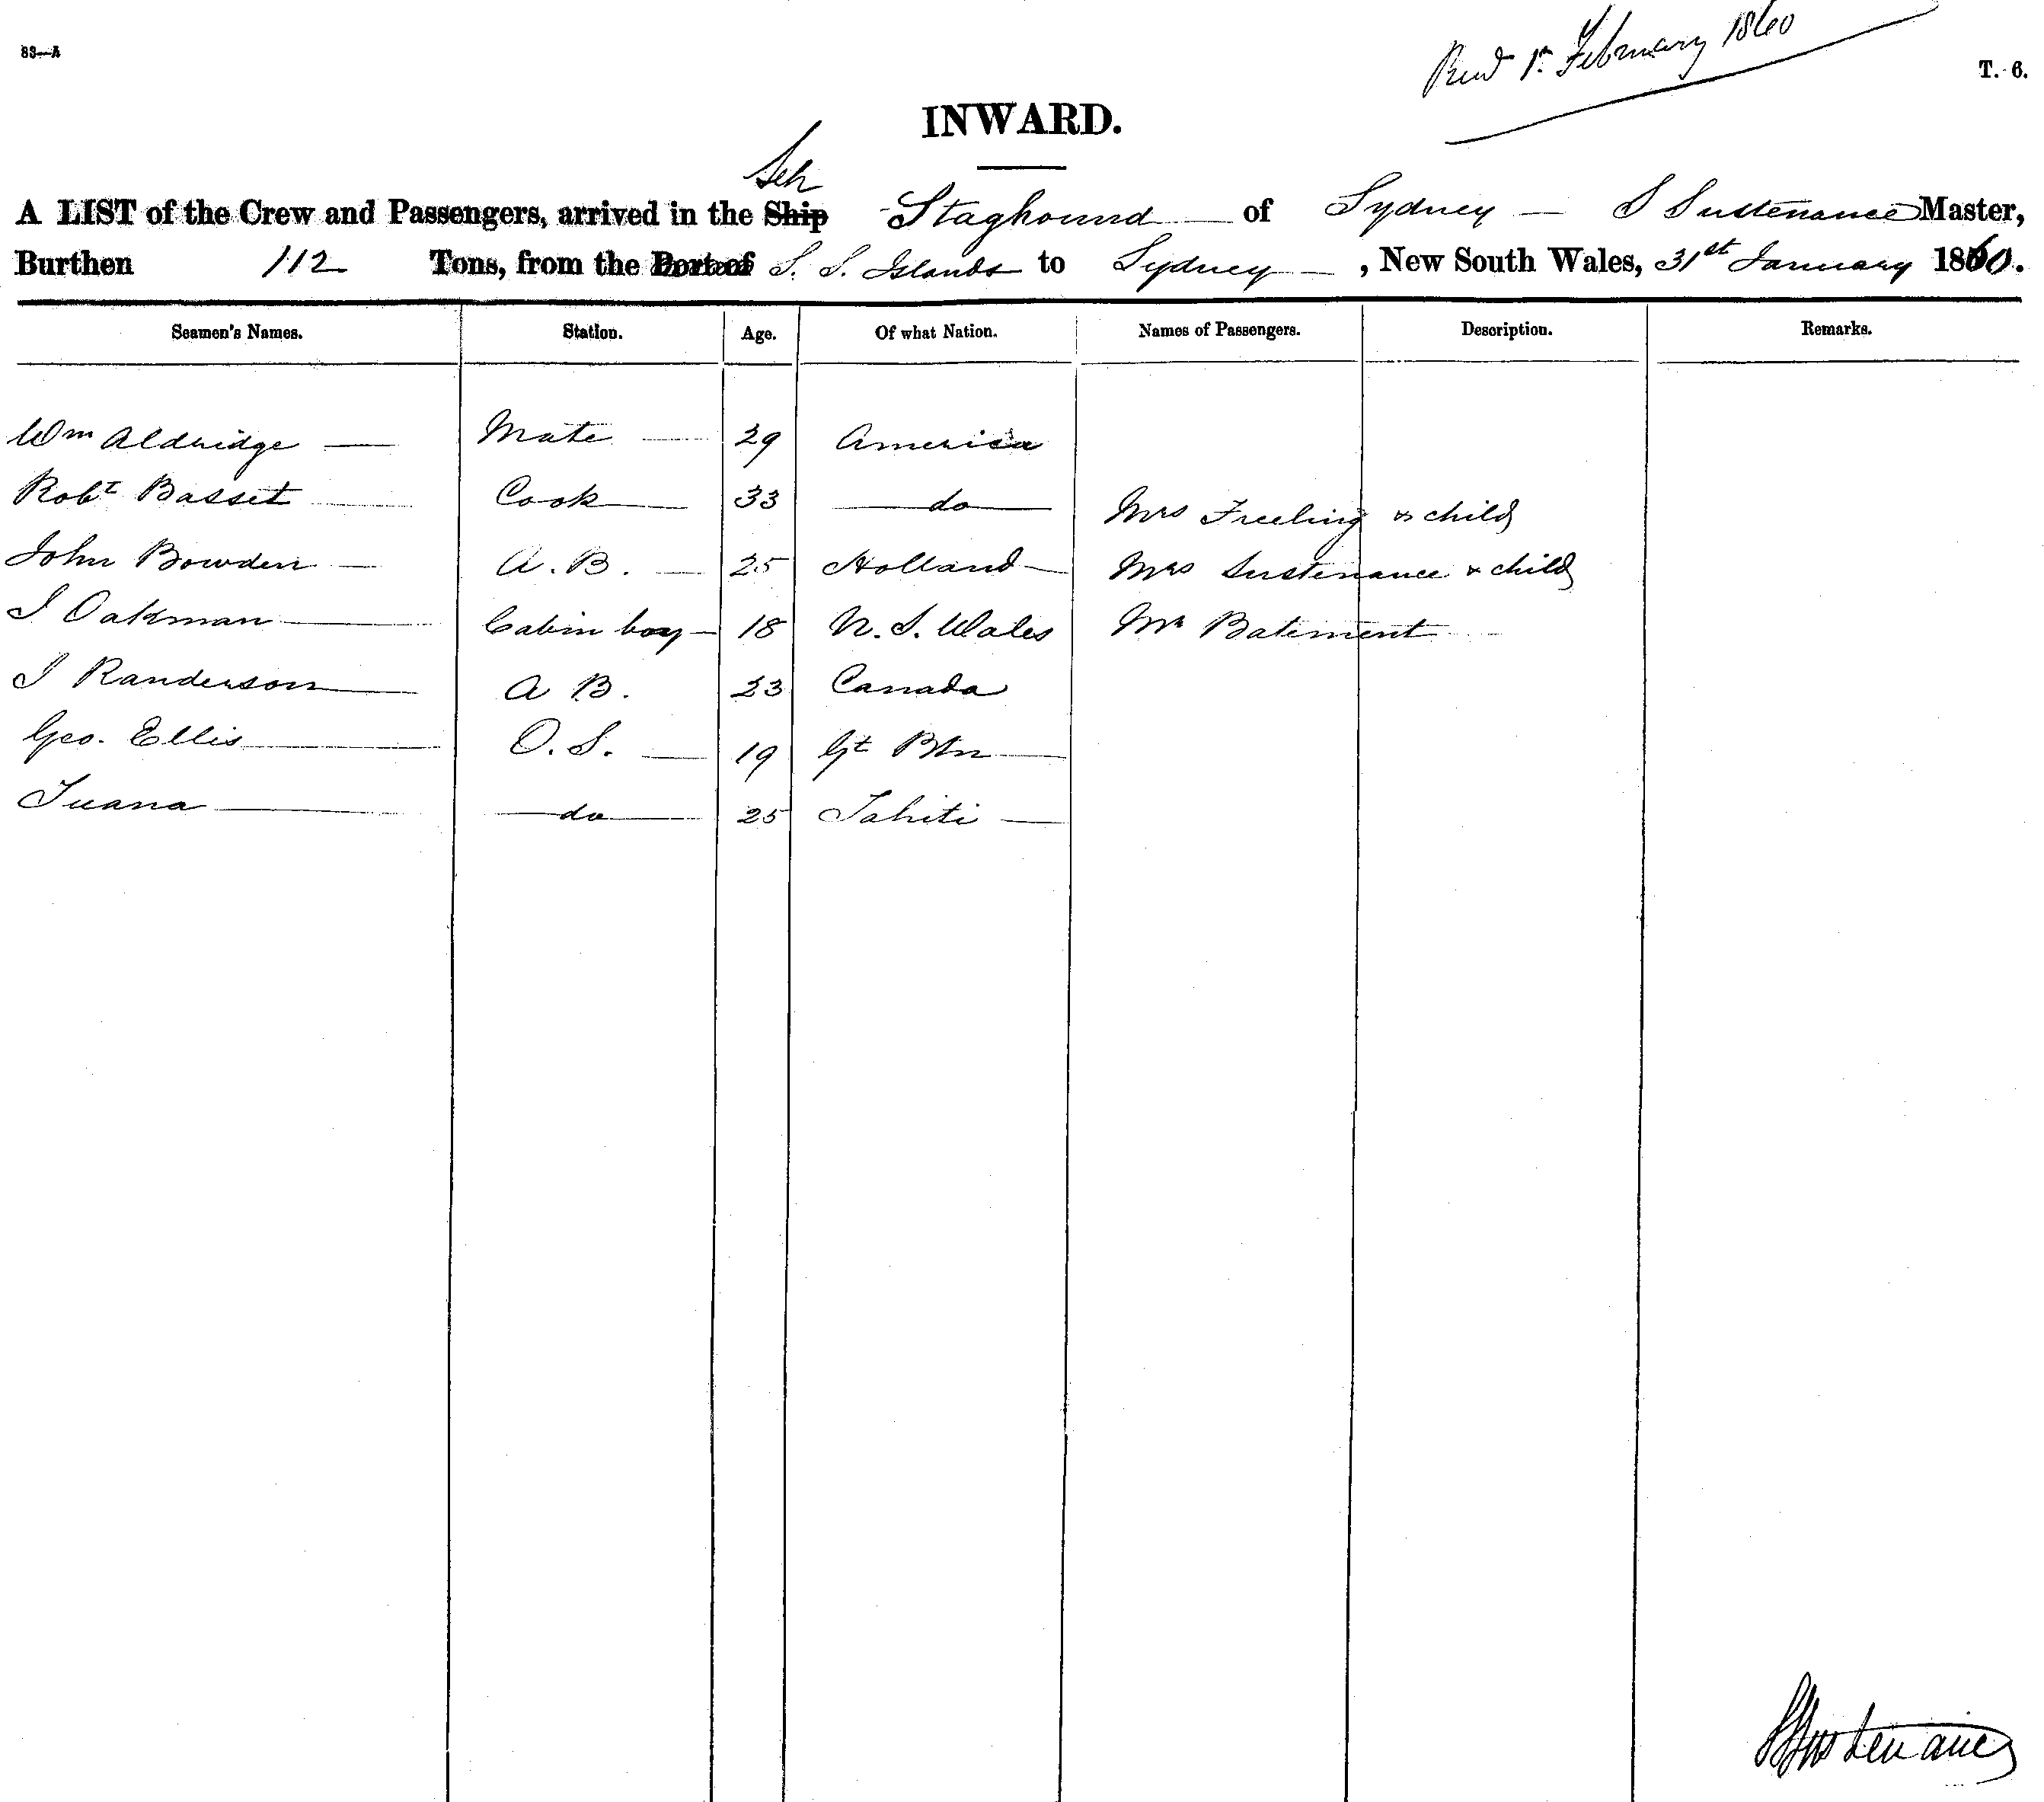 83—A
Recd 1st February 1860
T. 6.
INWARD.
Sch
A LIST of the Crew and Passengers, arrived in the Ship Staghound of Sydney — S Sustenance Master,
Burthen 112 Tons, from the Port of S. S. Islands to Sydney —, New South Wales, 31st January 1860.
Seamen's Names. Station. Age. Of what Nation. Names of Passengers. Description. Remarks.
Wm Aldridge — Mate — 29 America
Robt Basset — Cook — 33 — do —
Mrs Freeling & child
John Bowden — A. B. — 25 Holland —
Mrs Sustenance & child
J Oakman — Cabin boy — 18 N. S. Wales Mr Batement —
J Randerson — A B. 23 Canada
Geo. Ellis — O. S. — 19 Gt Btn —
Tuana — — do — 25 Tahiti —
S Sustenance